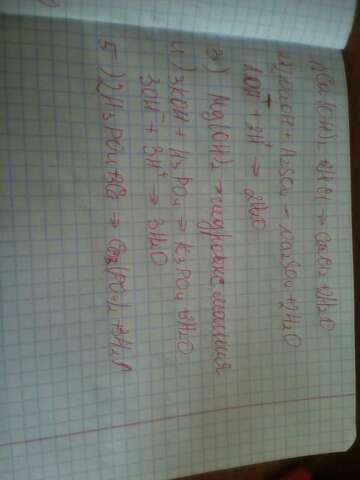 1) Ca(OH)2 + 2HCl → CaCl2 + 2H2O
2) 2NaOH + H2SO4 → Na2SO4 + 2H2O
2OH⁻ + 2H⁺ → 2H2O
3) Mg(OH)2 → гидроксид магния
4) 3KOH + H3PO4 → K3PO4 + 3H2O
3OH⁻ + 3H⁺ → 3H2O
5) 2H3PO4 + 3Ca → Ca3(PO4)2 + 3H2↑